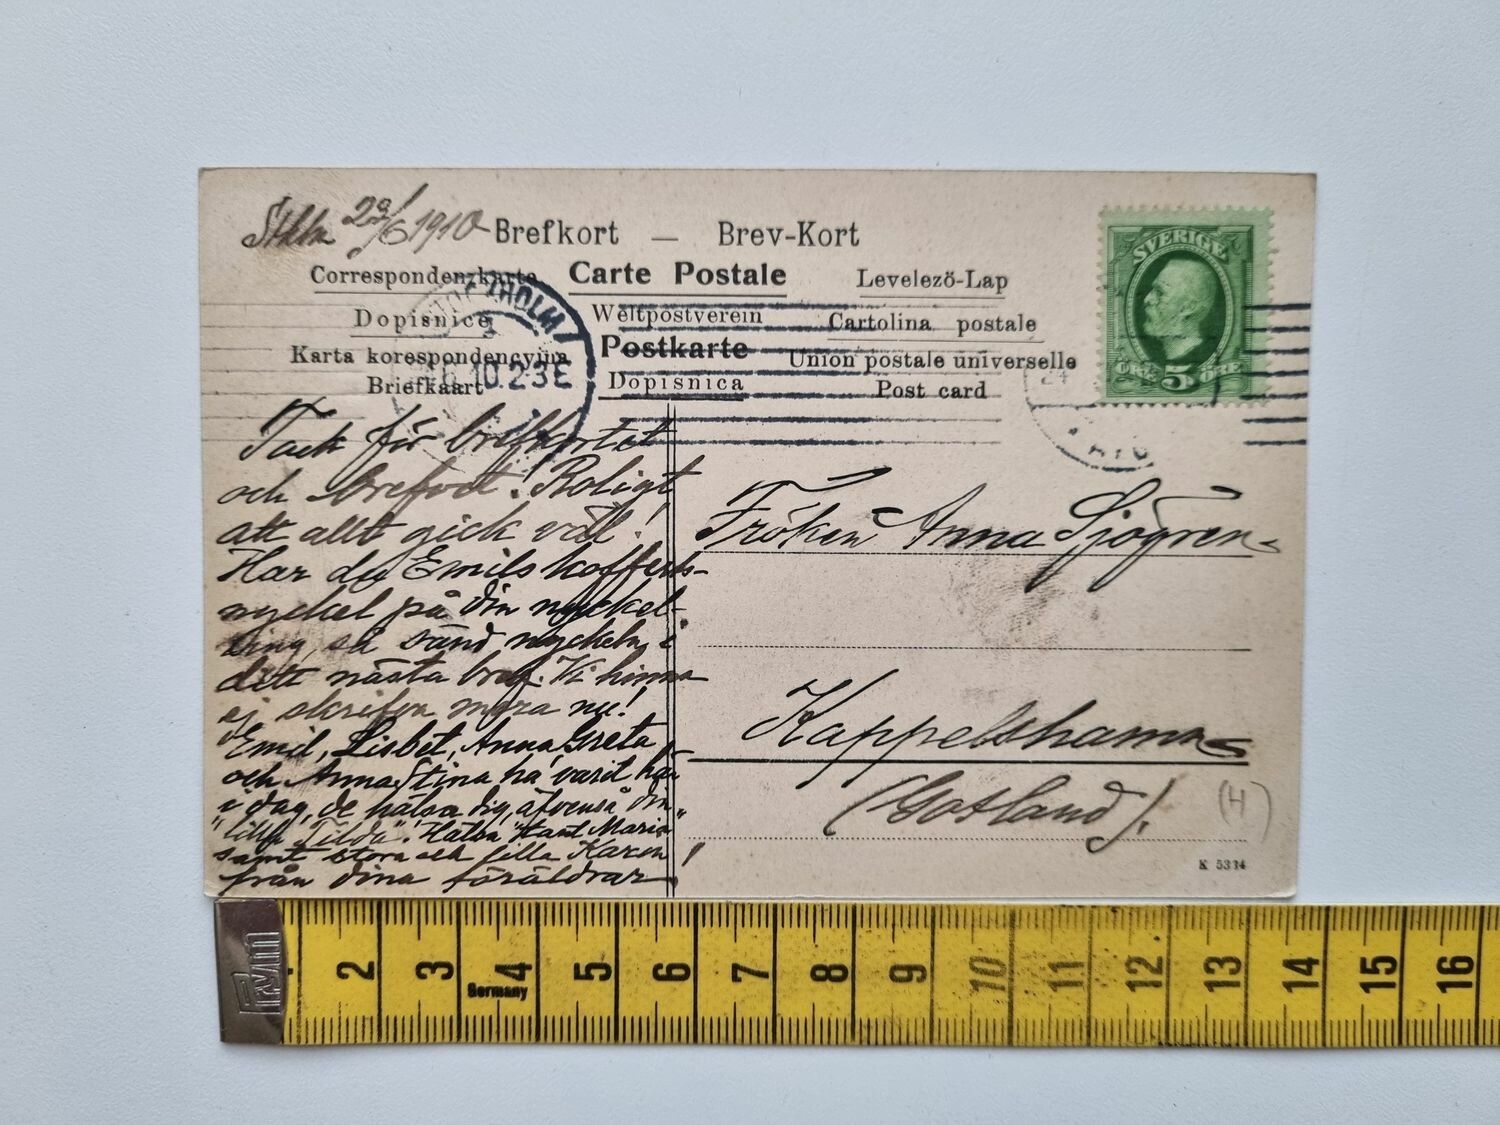 Sthlm 29/6 1910
Brefkort — Brev-Kort
Correspondenzkarte Carte Postale Levelező-Lap
Dopisnice Weltpostverein Cartolina postale
Karta korespondencyjna Postkarte Union postale universelle
Briefkaart Dopisnica Post card
STOCKHOLM 1
10.2-3E
SVERIGE
ÖRE 5 ÖRE
Tack för brefkortet
och brefvet! Roligt
att allt gick väl!
Har du Emils kofferts-
nyckel på din nyckel-
ring, så sänd nyckeln i
ditt nästa bref. Vi hinna
ej skrifva mera nu!
Emil, Lisbet, Anna Greta
och Anna Stina ha varit här
i dag, de hälsa dig, äfvenså din
"lilla Tilda". Hälsa "tant Maria"
samt stora och lilla Karen!
från dina föräldrar
Fröken Anna Sjögren
Kappelshamn
(Gotland).
(H)
K 5334
Prym
2 3 4 5 6 7 8 9 10 11 12 13 14 15 16
Germany